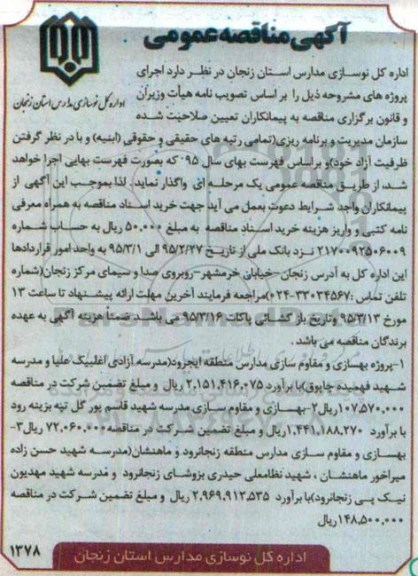 آگهی مناقصه عمومی
اداره کل نوسازی مدارس استان زنجان
اداره کل نوسازی مدارس استان زنجان در نظر دارد اجرای
پروژه های مشروحه ذیل را بر اساس تصویب نامه هیأت وزیران
و قانون برگزاری مناقصه به پیمانکاران تعیین صلاحیت شده
سازمان مدیریت و برنامه ریزی(تمامی رتبه های حقیقی و حقوقی (ابنیه) و با در نظر گرفتن
ظرفیت آزاد خود)و براساس فهرست بهای سال ۹۵- که بصورت فهرست بهایی اجرا خواهد
شد، از طریق مناقصه عمومی یک مرحله ای واگذار نماید. لذا بموجب این آگهی از
پیمانکاران واجد شرایط دعوت بعمل می آید جهت خرید اسناد مناقصه به همراه معرفی
نامه کتبی و واریز هزینه خرید اسناد مناقصه به مبلغ ۵۰.۰۰۰ ریال به حساب شماره
۲۱۷۰۰۹۲۵۰۶۰۰۹ نزد بانک ملی از تاریخ ۹۵/۲/۲۷ الی ۹۵/۳/۱ به واحد امور قراردادها
این اداره کل به آدرس زنجان-خیابان خرمشهر-روبروی صدا و سیمای مرکز زنجان(شماره
تلفن تماس ۳۳۰۳۴۵۶۷-۰۲۴)مراجعه فرمایند آخرین مهلت ارائه پیشنهاد تا ساعت ۱۳
مورخ ۹۵/۳/۱۳ وتاریخ باز گشایی پاکات ۹۵/۳/۱۶ می باشد ضمناً هزینه آگهی به عهده
برندگان مناقصه می باشد.
۱-پروژه بهسازی و مقاوم سازی مدارس منطقه ایجرود(مدرسه آزادی اغلبیک علیا و مدرسه
شهید فهمیده چاپوق)با برآورد ۲،۱۵۱،۴۱۶،۰۷۵ ریال و مبلغ تضمین شرکت در مناقصه
۱۰۷،۵۷۰،۰۰۰ریال۲-بهسازی و مقاوم سازی مدرسه شهید قاسم پور گل تپه بزینه رود
با برآورد ۱،۴۴۱،۱۸۸،۲۷۰ریال و مبلغ تضمین شرکت در مناقصه۷۲،۰۶۰،۰۰۰ریال۳-
بهسازی و مقاوم سازی مدارس منطقه زنجانرود و ماهنشان(مدرسه شهید حسن زاده
میرآخور ماهنشان ، شهید نظامعلی حیدری بزوشای زنجانرود و مدرسه شهید مهدیون
نیک پی زنجانرود)با برآورد ۲،۹۶۹،۹۱۲،۵۳۵ ریال و مبلغ تضمین شرکت در مناقصه
۱۴۸،۵۰۰،۰۰۰ریال
اداره کل نوسازی مدارس استان زنجان
۱۳۷۸